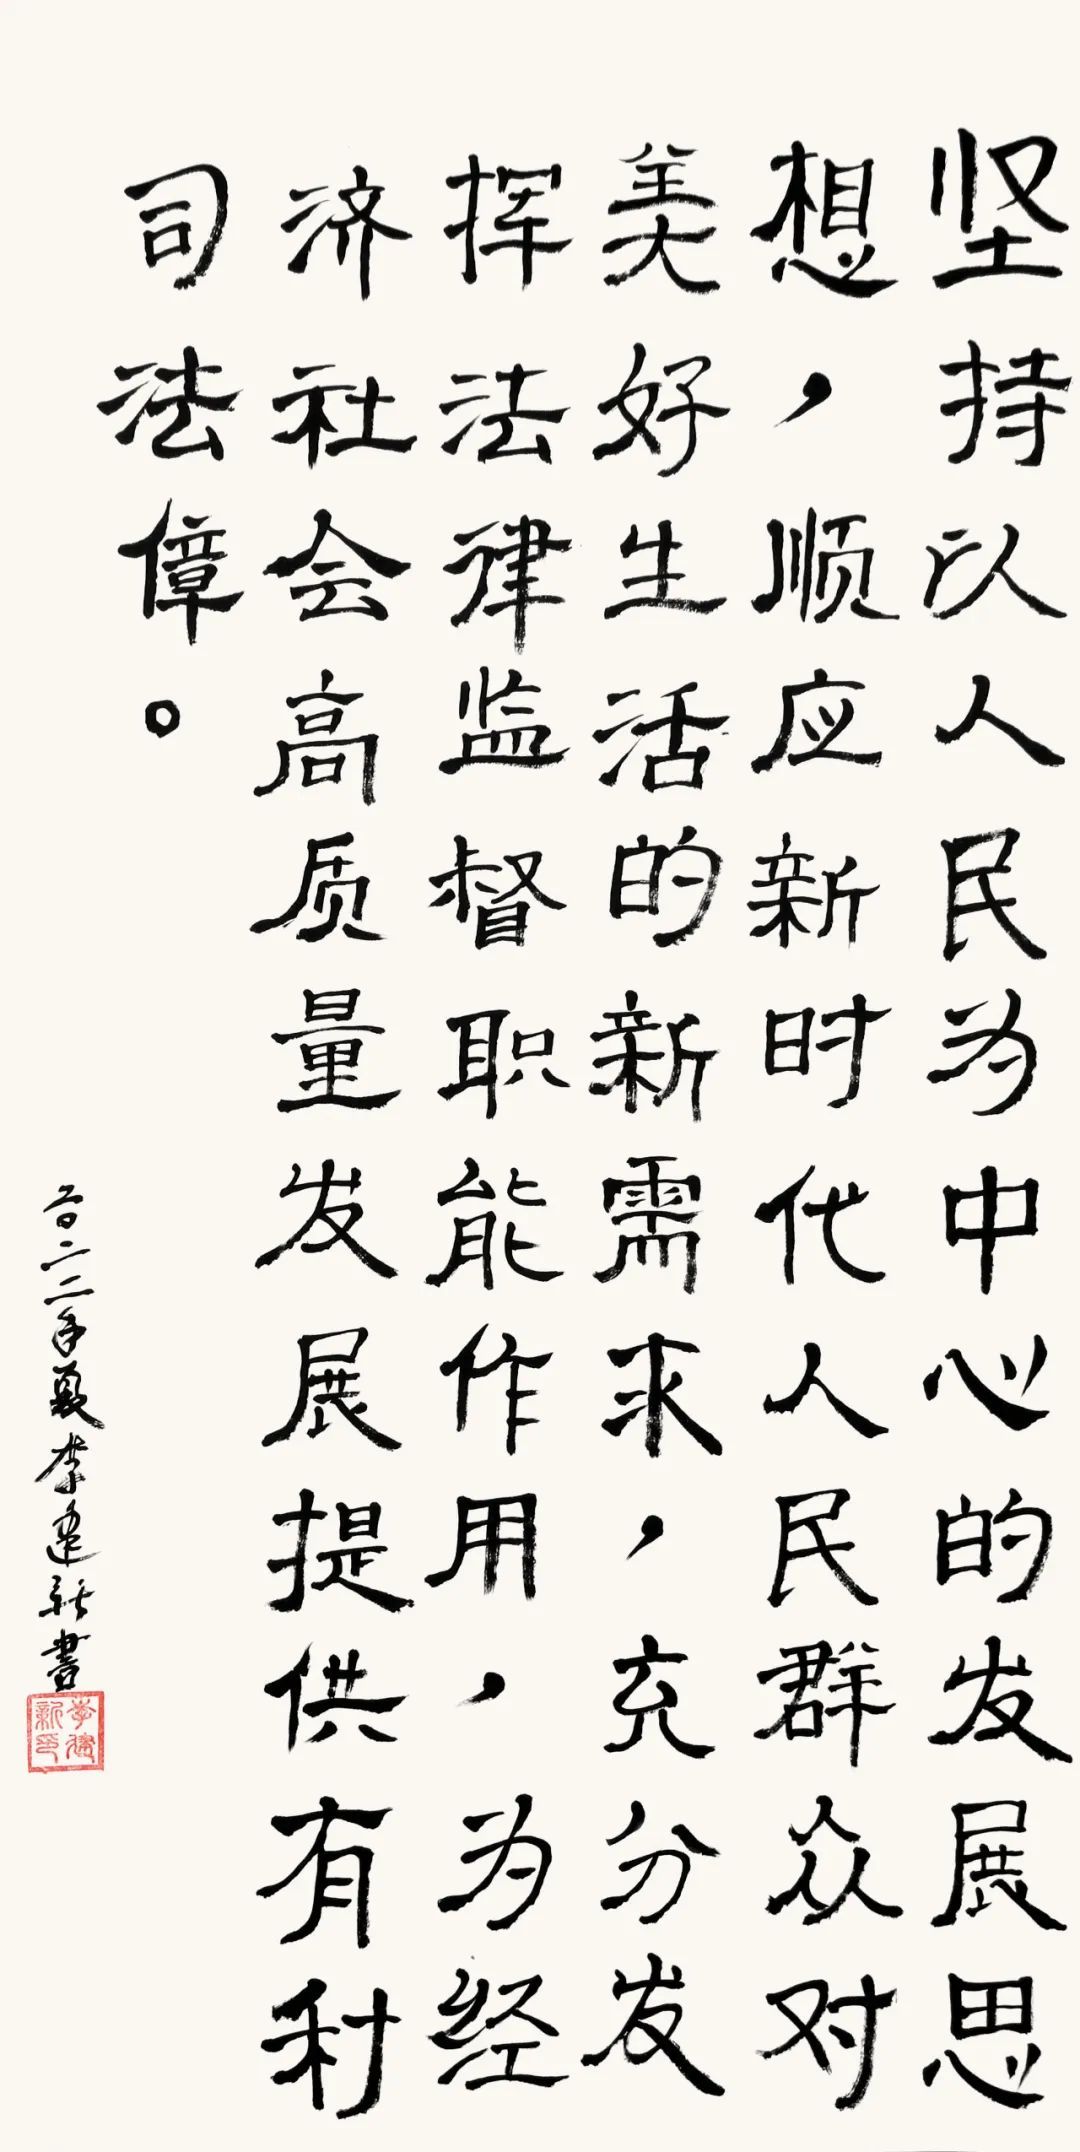 坚持以人民为中心的发展思
想，顺应新时代人民群众对
美好生活的新需求，充分发
挥法律监督职能作用，为经
济社会高质量发展提供有利
司法傽。
二〇二二年夏李建新書
李建新印